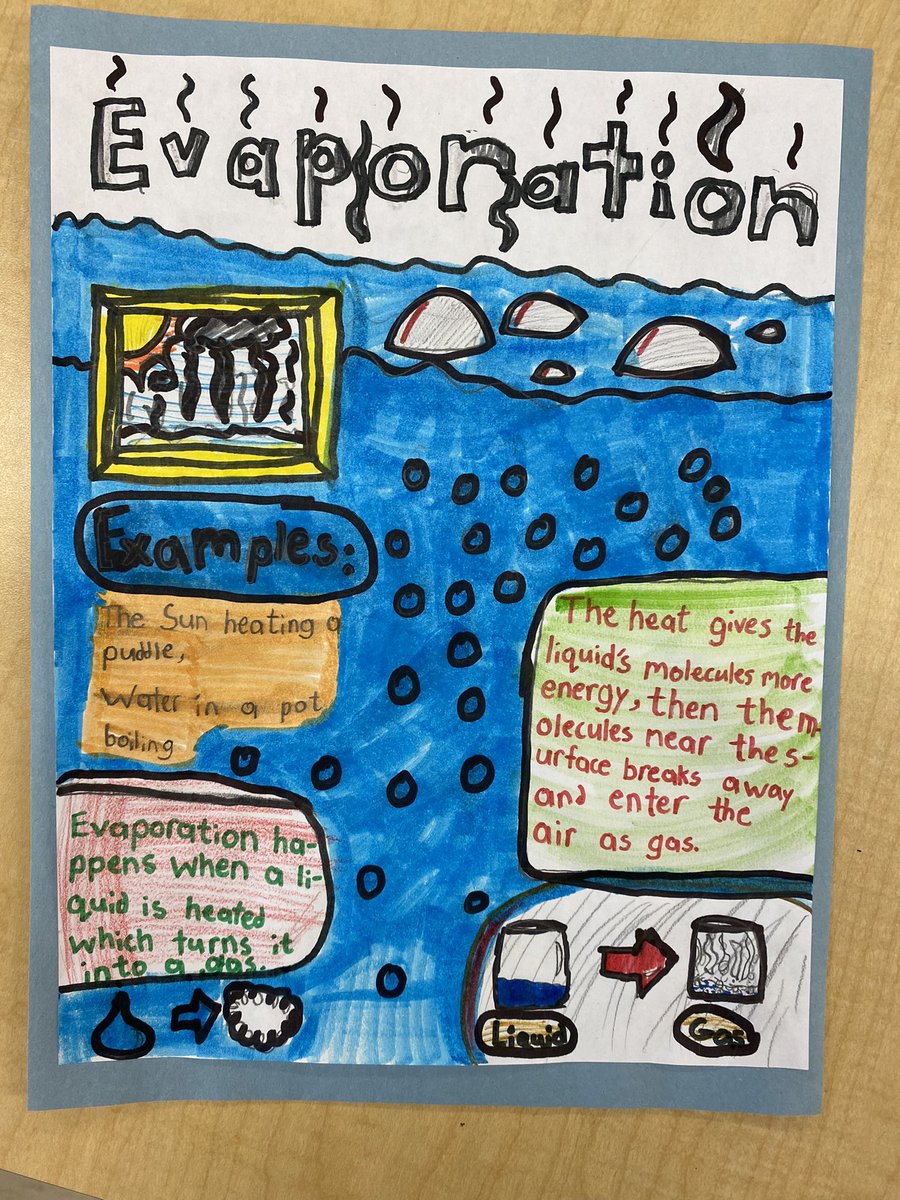 Evaporation
Examples:
The Sun heating a
puddle,
Water in a pot
boiling
The heat gives the
liquid's molecules more
energy, then the m-
olecules near the s-
urface breaks away
and enter the
air as gas.
Evaporation ha-
ppens when a li-
quid is heated
which turns it
into a gas.
Liquid
Gas